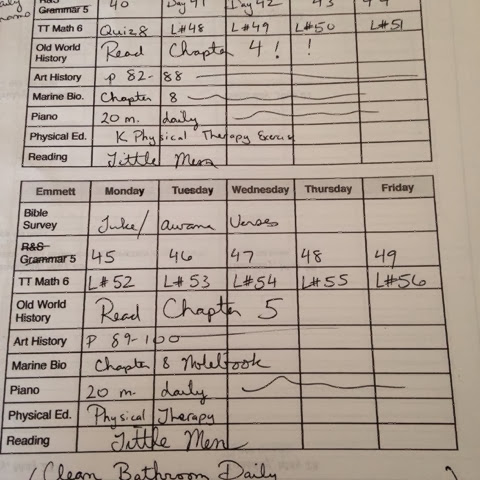 Grammar 5 40 Day 41 Day 42 43 44
TT Math 6 Quiz 8 L#48 L#49 L#50 L#51
Old World History Read Chapter 4!!
Art History p 82-88
Marine Bio. Chapter 8
Piano 20 m. daily
Physical Ed. K Physical Therapy Exercise
Reading Little Men
Emmett Monday Tuesday Wednesday Thursday Friday
Bible Survey Luke/ awana Verses
R&S Grammar 5 45 46 47 48 49
TT Math 6 L#52 L#53 L#54 L#55 L#56
Old World History Read Chapter 5
Art History P 89-100
Marine Bio Chapter 8 Notebook
Piano 20 m. daily
Physical Ed. Physical Therapy
Reading Little Men
Clean Bathroom Daily